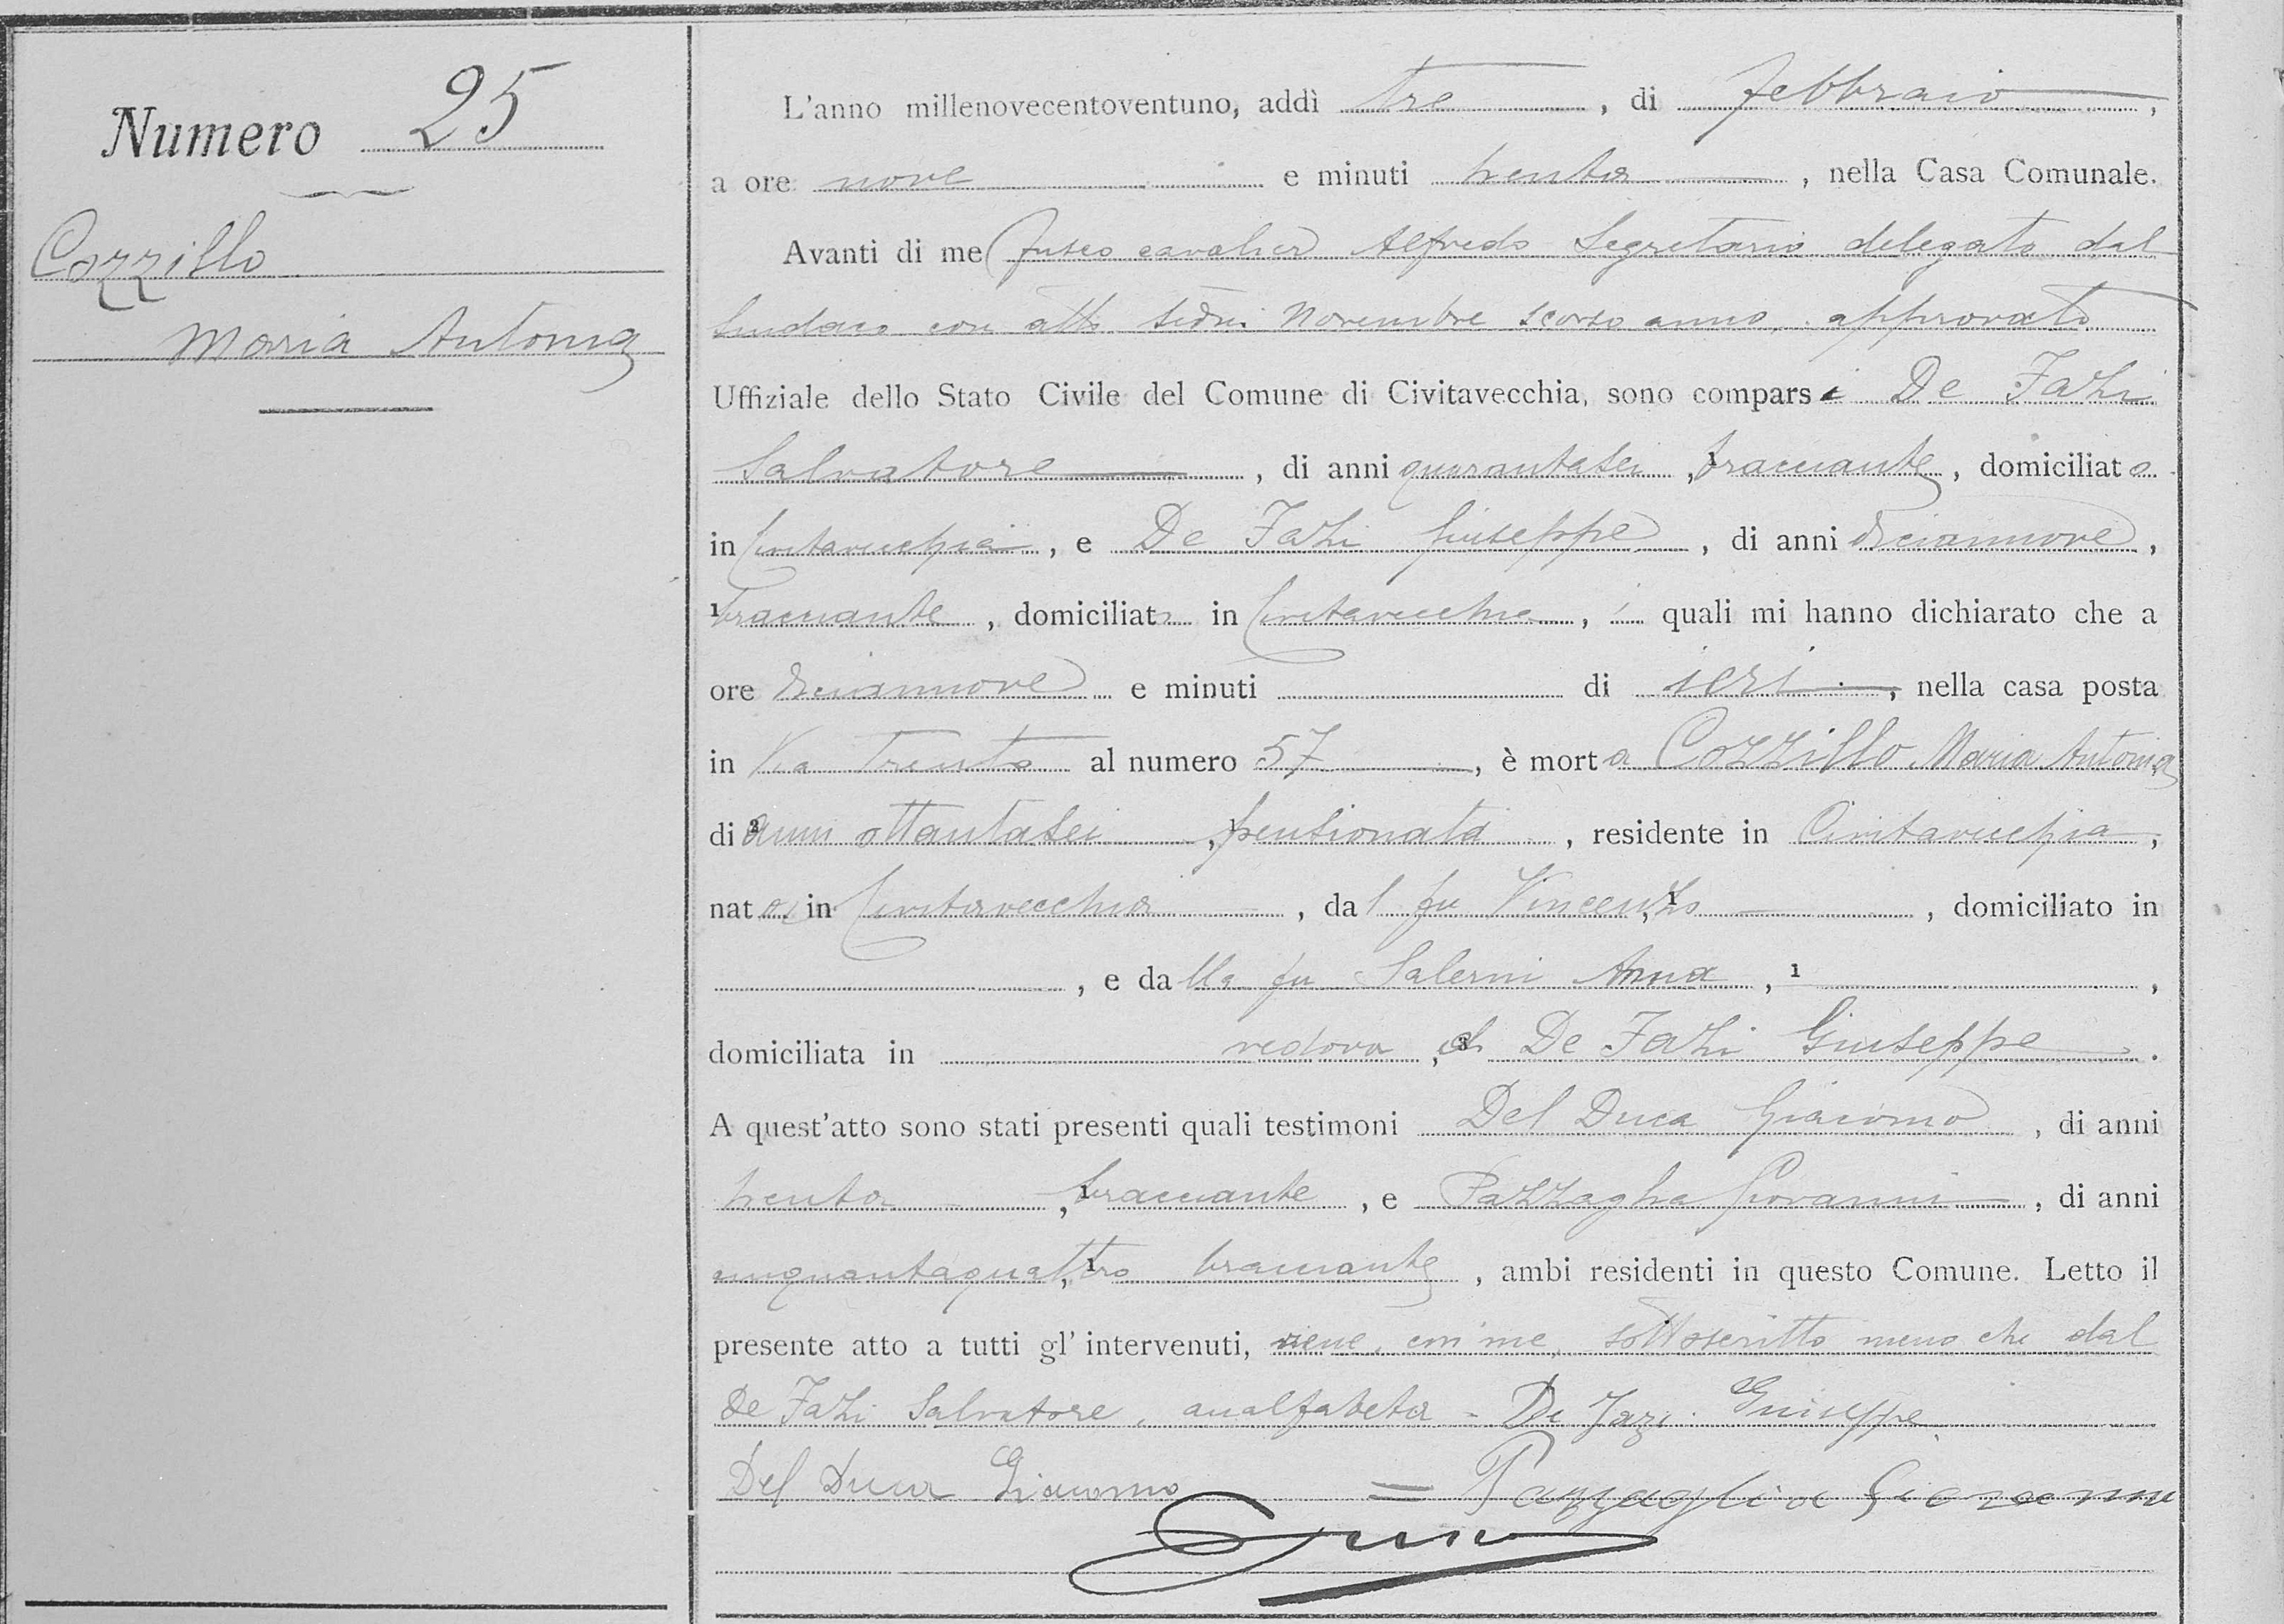 Numero 25
Cozzillo
Maria Antonia
L'anno millenovecentoventuno, addì tre, di febbraio,
a ore nove e minuti trenta, nella Casa Comunale.
Avanti di me Fusco cavalier Alfredo Segretario delegato dal
Sindaco con atto sedici Novembre scorso anno, approvato
Uffiziale dello Stato Civile del Comune di Civitavecchia, sono comparsi De Fazi
Salvatore, di anni quarantasei, bracciante, domiciliato
in Civitavecchia, e De Fazi Giuseppe, di anni diciannove,
1 bracciante, domiciliato in Civitavecchia, i quali mi hanno dichiarato che a
ore diciannove e minuti di ieri, nella casa posta
in Via Trento al numero 57, è morta Cozzillo Maria Antonia
di anni ottantasei, pensionata, residente in Civitavecchia,
nata in Civitavecchia, dal fu Vincenzo, 1 domiciliato in
, e dalla fu Salerni Anna, 1 ,
domiciliata in vedova, di De Fazi Giuseppe.
A quest'atto sono stati presenti quali testimoni Del Duca Giacomo, di anni
trenta, 1 bracciante, e Pazzaglia Giovanni, di anni
cinquantaquattro, 1 bracciante, ambi residenti in questo Comune. Letto il
presente atto a tutti gl'intervenuti, viene, con me, sottoscritto meno che dal
De Fazi Salvatore, analfabeta - De Fazi Giuseppe
Del Duca Giacomo = Pazzaglia Giovanni
Fusco